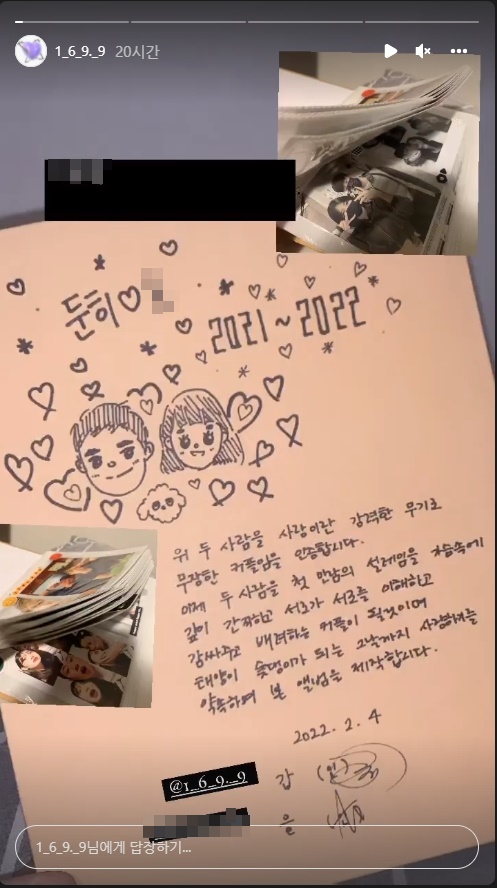 1_6_9._9 20시간
둔히♡
2021~2022
위 두 사람을 사랑이란 강력한 무기로
무장한 커플임을 인증합니다.
이제 두 사람을 첫 만남의 설레임을 가슴속에
깊이 간직하고 서로가 서로를 이해하고
감싸주고 배려하는 커플이 될것이며
태양이 숯댕이가 되는 그날까지 사랑하기를
약속하며 본 앨범을 제작합니다.
2022. 2. 4
@1_6_9._9 갑
을
1_6_9._9님에게 답장하기...